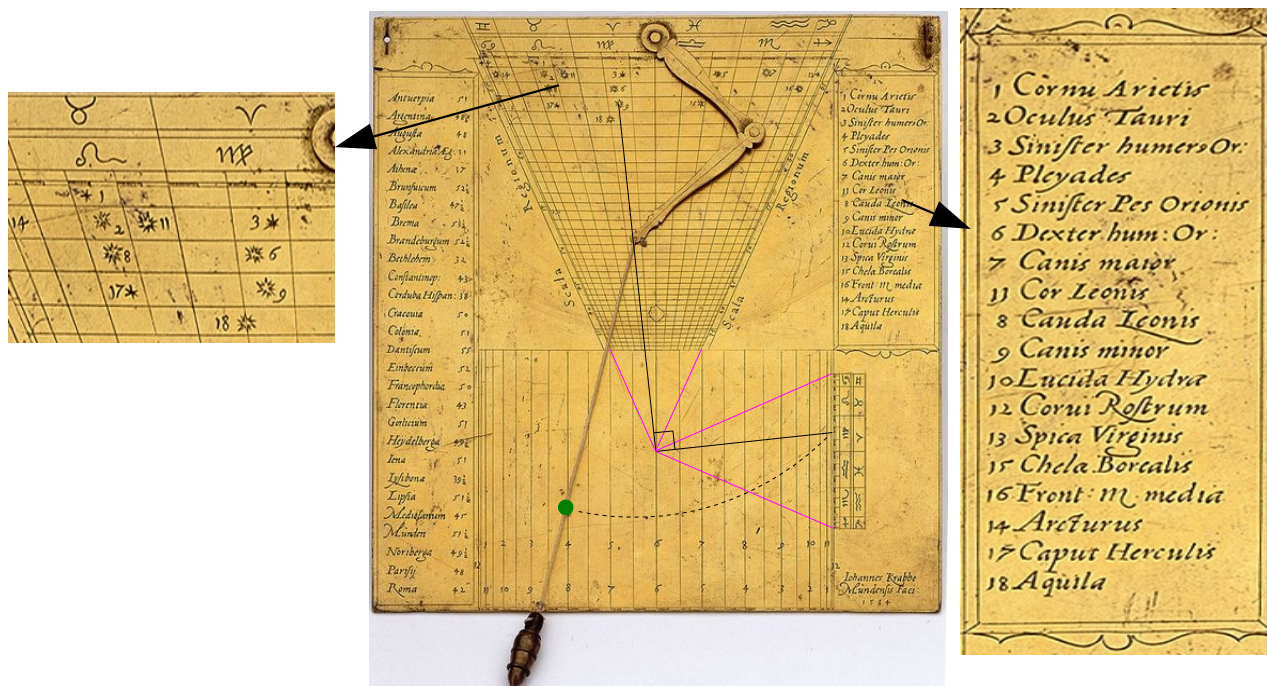 ♉ ♈
♌ ♍
1
14 2 11 3
8 6
17 9
18
♊ ♉ ♈ ♓ ♒
♋ ♌ ♍ ♎ ♏ ♐
14 2 11 3 5 12
8 6
17 9 15
18
Regionum
Scala
Regionum
Scala
Antuerpia 51
Argentina
Augusta 48
Alexandria Æg. 31
Athenæ 37
Brunsuicum 52½
Basilea 47½
Brema 53½
Brandeburgum 52½
Bethlehem 32
Constantinop: 43
Corduba Hispan: 38
Cracouia 50
Colonia 51
Dantiscum 55
Einbeccum 52
Francophordia 50
Florentia 43
Gorlicium 51
Heydelberga 49½
Iena 51
Lysibona 39½
Lipsia 51½
Mediolanum 45
Munden 51½
Noriberga 49½
Parisij 48
Roma 42
1 Cornu Arietis
2 Oculus Tauri
3 Sinister humerꝰ Or:
4 Pleyades
5 Sinister Pes Orionis
6 Dexter hum: Or:
7 Canis maior
11 Cor Leonis
8 Cauda Leonis
9 Canis minor
10 Lucida Hydræ
12 Corui Rostrum
13 Spica Virginis
15 Chela Borealis
16 Front ♏ media
14 Arcturus
17 Caput Herculis
18 Aquila
1 2 3 4 5 6 7 8 9 10 11
12 12
11 10 9 8 7 6 5 4 3 2 1
Iohannes Krabbe
Mundensis Faci
1584
1 Cornu Arietis
2 Oculus Tauri
3 Sinister humerꝰ Or:
4 Pleyades
5 Sinister Pes Orionis
6 Dexter hum: Or:
7 Canis maior
11 Cor Leonis
8 Cauda Leonis
9 Canis minor
10 Lucida Hydræ
12 Corui Rostrum
13 Spica Virginis
15 Chela Borealis
16 Front: ♏ media
14 Arcturus
17 Caput Herculis
18 Aquila